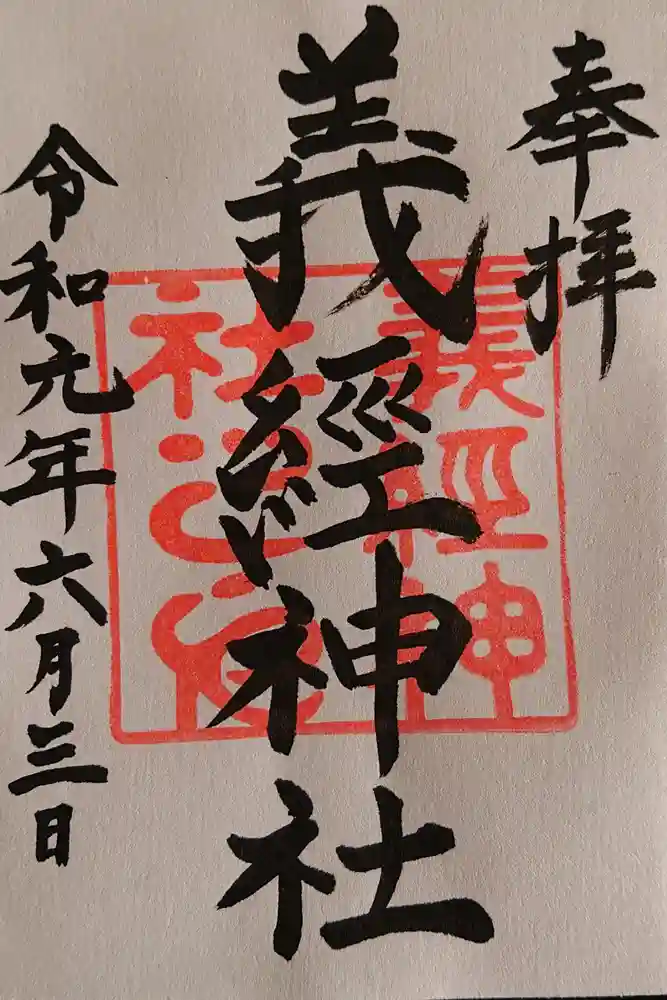 奉拝
義經神社
義經神
社之印
令和元年六月三日